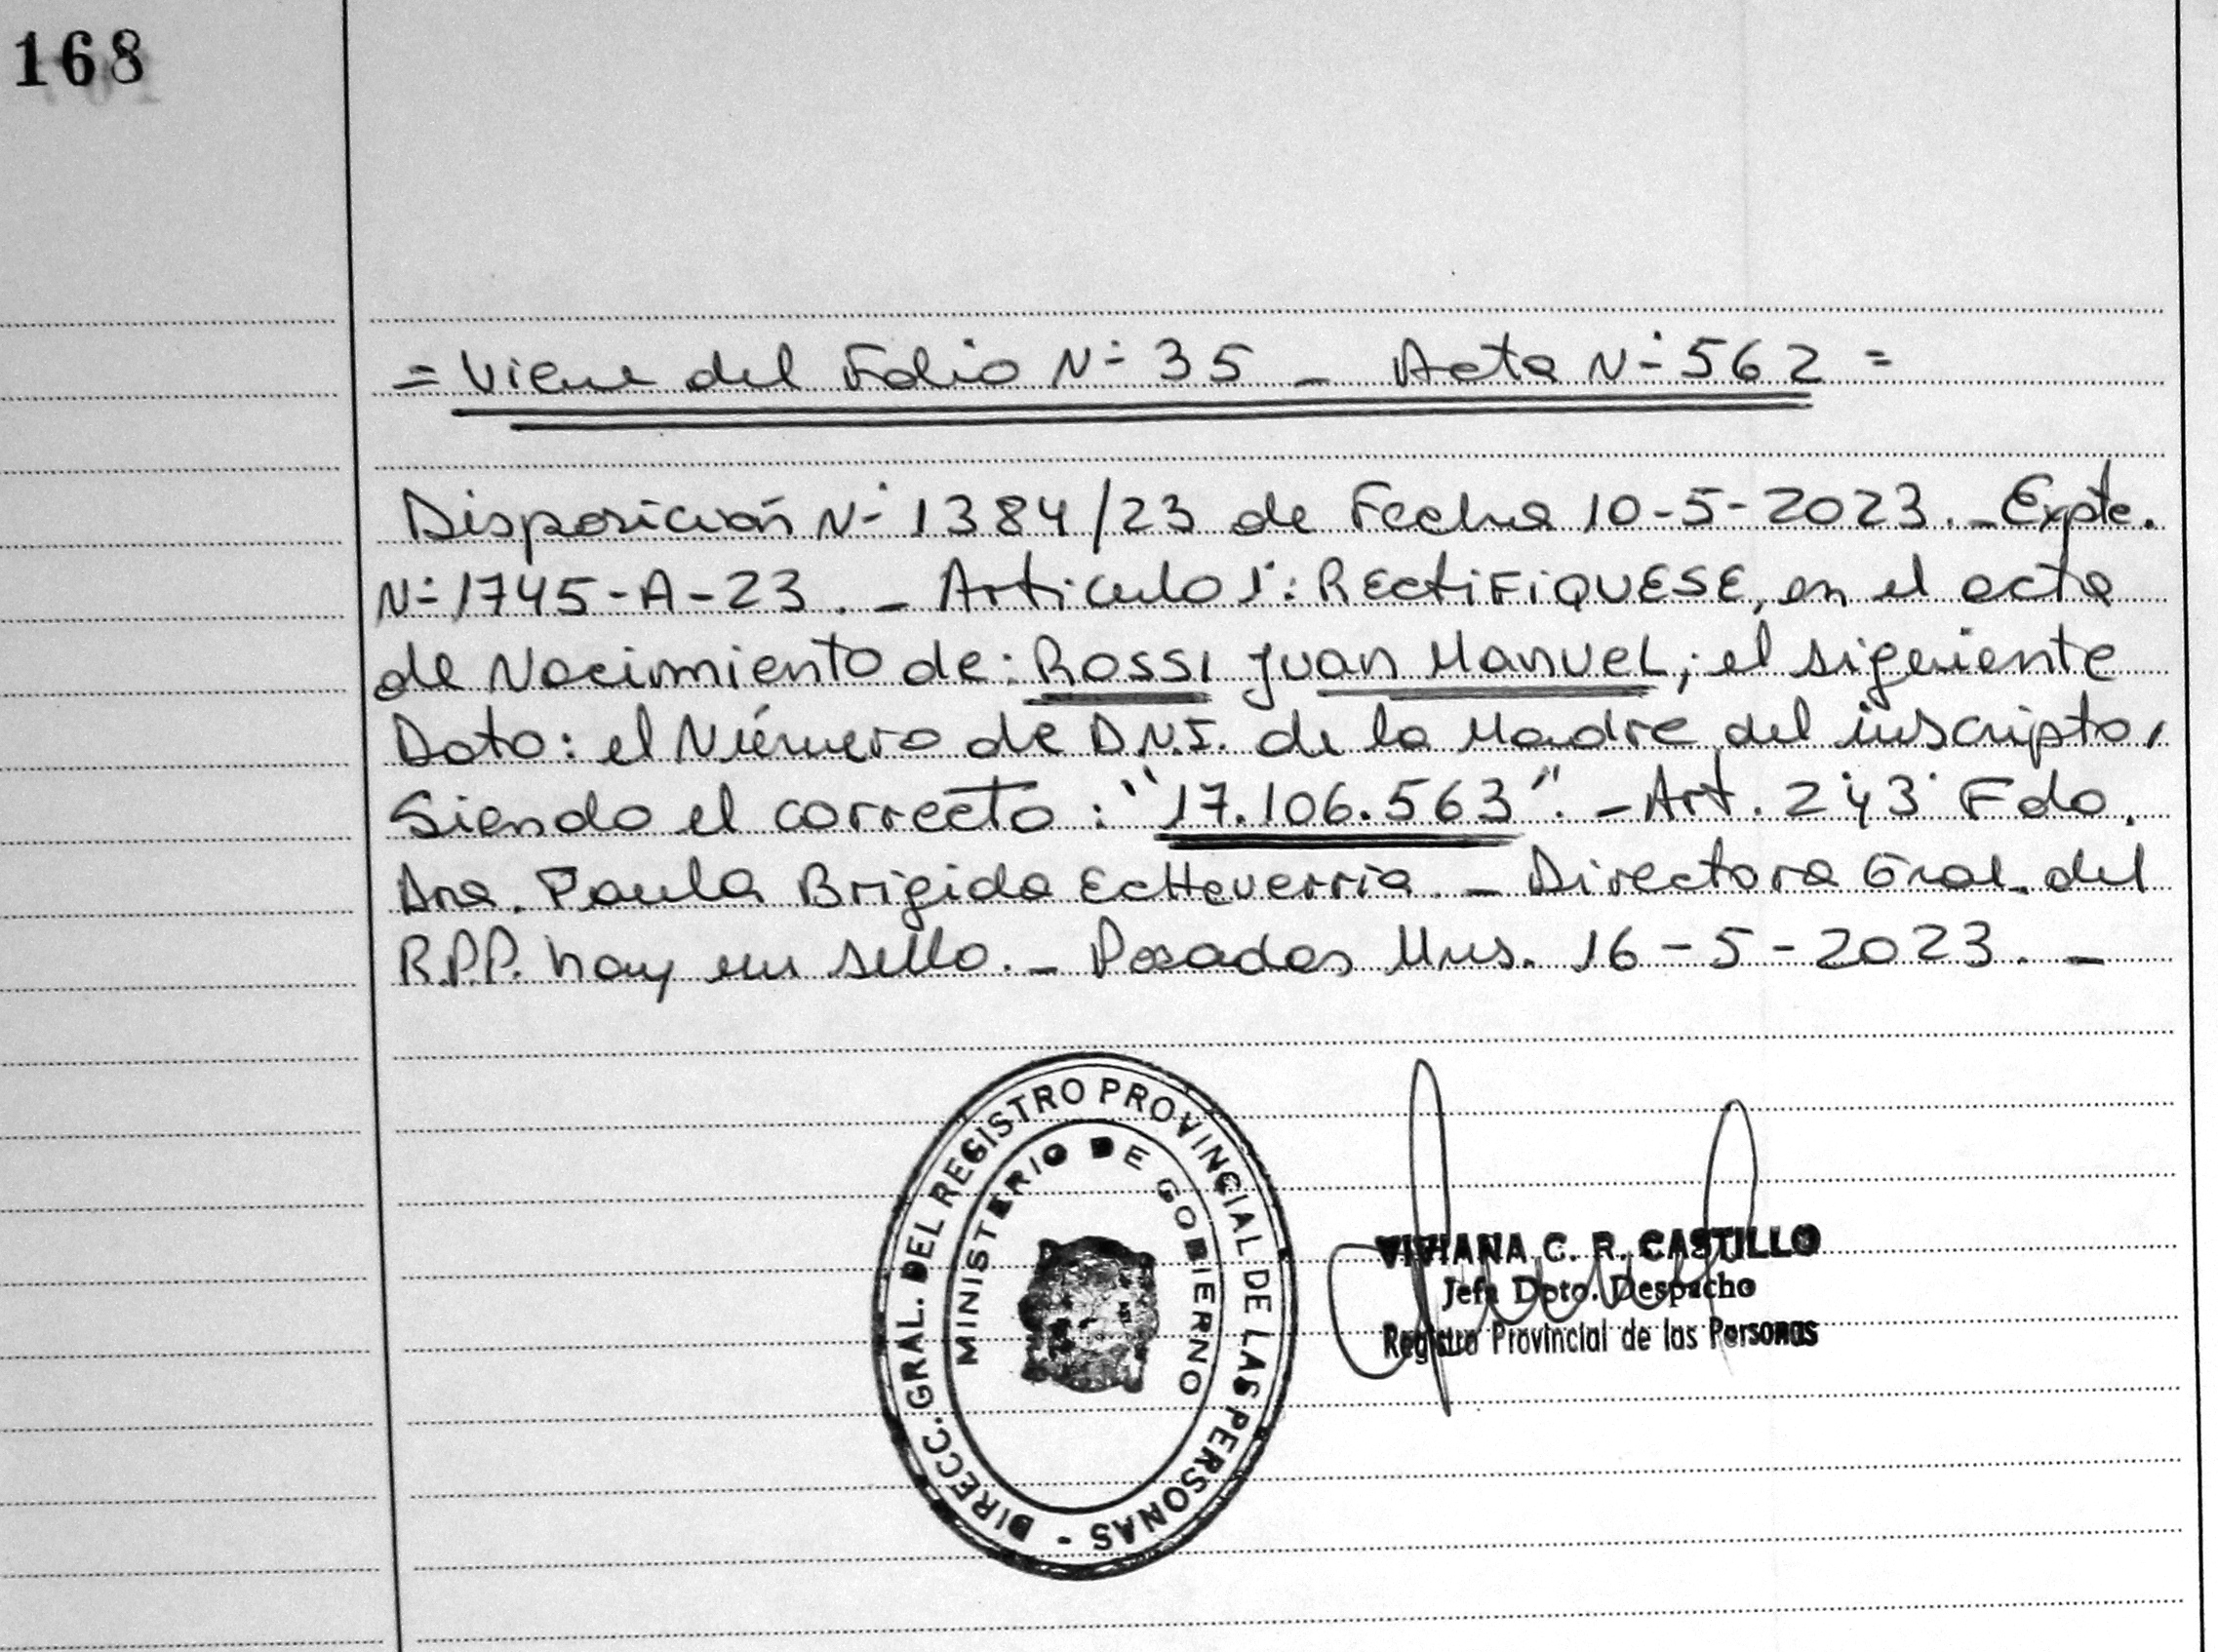 168
= Viene del Folio Nº 35 _ Acta Nº 562 =
Disposición Nº 1384/23 de Fecha 10-5-2023._Expte.
Nº 1745-A-23._ Articulo 1º: RECtiFiQUESE, en el acta
de Nacimiento de: Rossi Juan Manuel; el siguiente
Dato: el Número de D.N.I. de la Madre del inscripto,
Siendo el correcto: "17.106.563"._Art. 2º y 3º Fdo.
Dra. Paula Brigida Echeverria _ Directora Gral. del
R.P.P. hay un sello._ Posadas Mns. 16-5-2023._
DIRECC. GRAL. DEL REGISTRO PROVINCIAL DE LAS PERSONAS -
MINISTERIO DE GOBIERNO
VIVIANA C. R. CASTILLO
Jefa Dpto. Despacho
Registro Provincial de las Personas